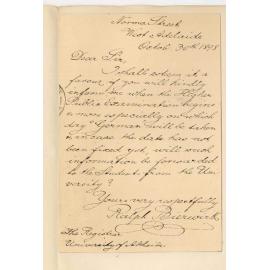 Norma Street
West Adelaide
Octob. 30th 1898
Dear Sir,
I shall esteem it a
favour if you will kindly
inform me when the Higher
Public Examination begins
& more especially on which
day "German" will be taken
In case the date has not
been fixed yet, will such
information be forwarded
to the Students from the Uni-
versity?
Yours very respectfully
Ralph
The Registrar
University of Adelaide